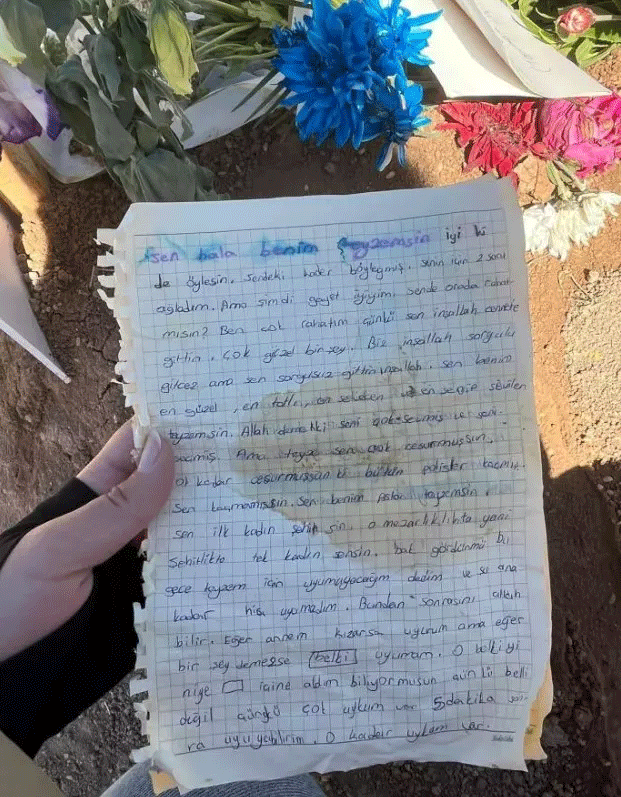 Sen hala benim teyzemsin iyi ki
de öylesin. Sendeki kader böyleymiş. Senin için 2 saat
ağladım. Ama şimdi gayet iyiyim, sende orada rahat
mısın? Ben çok rahatım çünkü sen inşallah cennete
gittin. Çok güzel bir şey. Biz inşallah sorgulu
gitcez ama sen sorgusuz gittin inşallah. Sen benim
en güzel, en tatlı, en en sevilen
teyzemsin. Allah demekki seni çok sevmiş ve seni
seçmiş. Ama teyze sen çok cesurmuşsun.
O kadar cesurmuşsun ki bütün polisler kaçmış
Sen kaçmamışsın. Sen benim Aslan teyzemsin.
Sen ilk kadın şehitsin, o mezarlıklıkta yani
Şehitlikte tek kadın sensin. bak gördünmü bu
gece teyzem için uyumuyacağım dedim ve şu ana
kadar hiç uyumadım. Bundan sonrasını allah
bilir. Eğer annem kızarsa uyurum ama eğer
bir şey demezse belki uyumam. O belkiyi
niye içine aldım biliyormusun çünkü belli
değil çünkü çok uykum var 5 dakika son-
ra uyuyabilirim. O kadar uykum var.